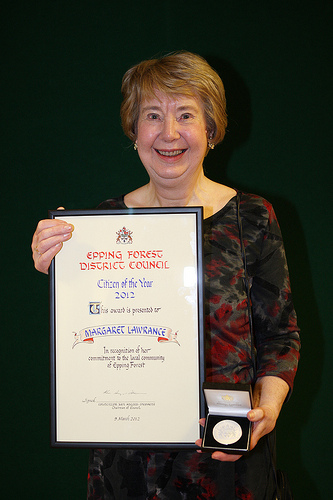 EPPING FOREST
DISTRICT COUNCIL
Citizen of the Year
2012
This award is presented to
MARGARET LAWRANCE
In recognition of her
commitment to the local community
of Epping Forest
Signed
Chairman of Council